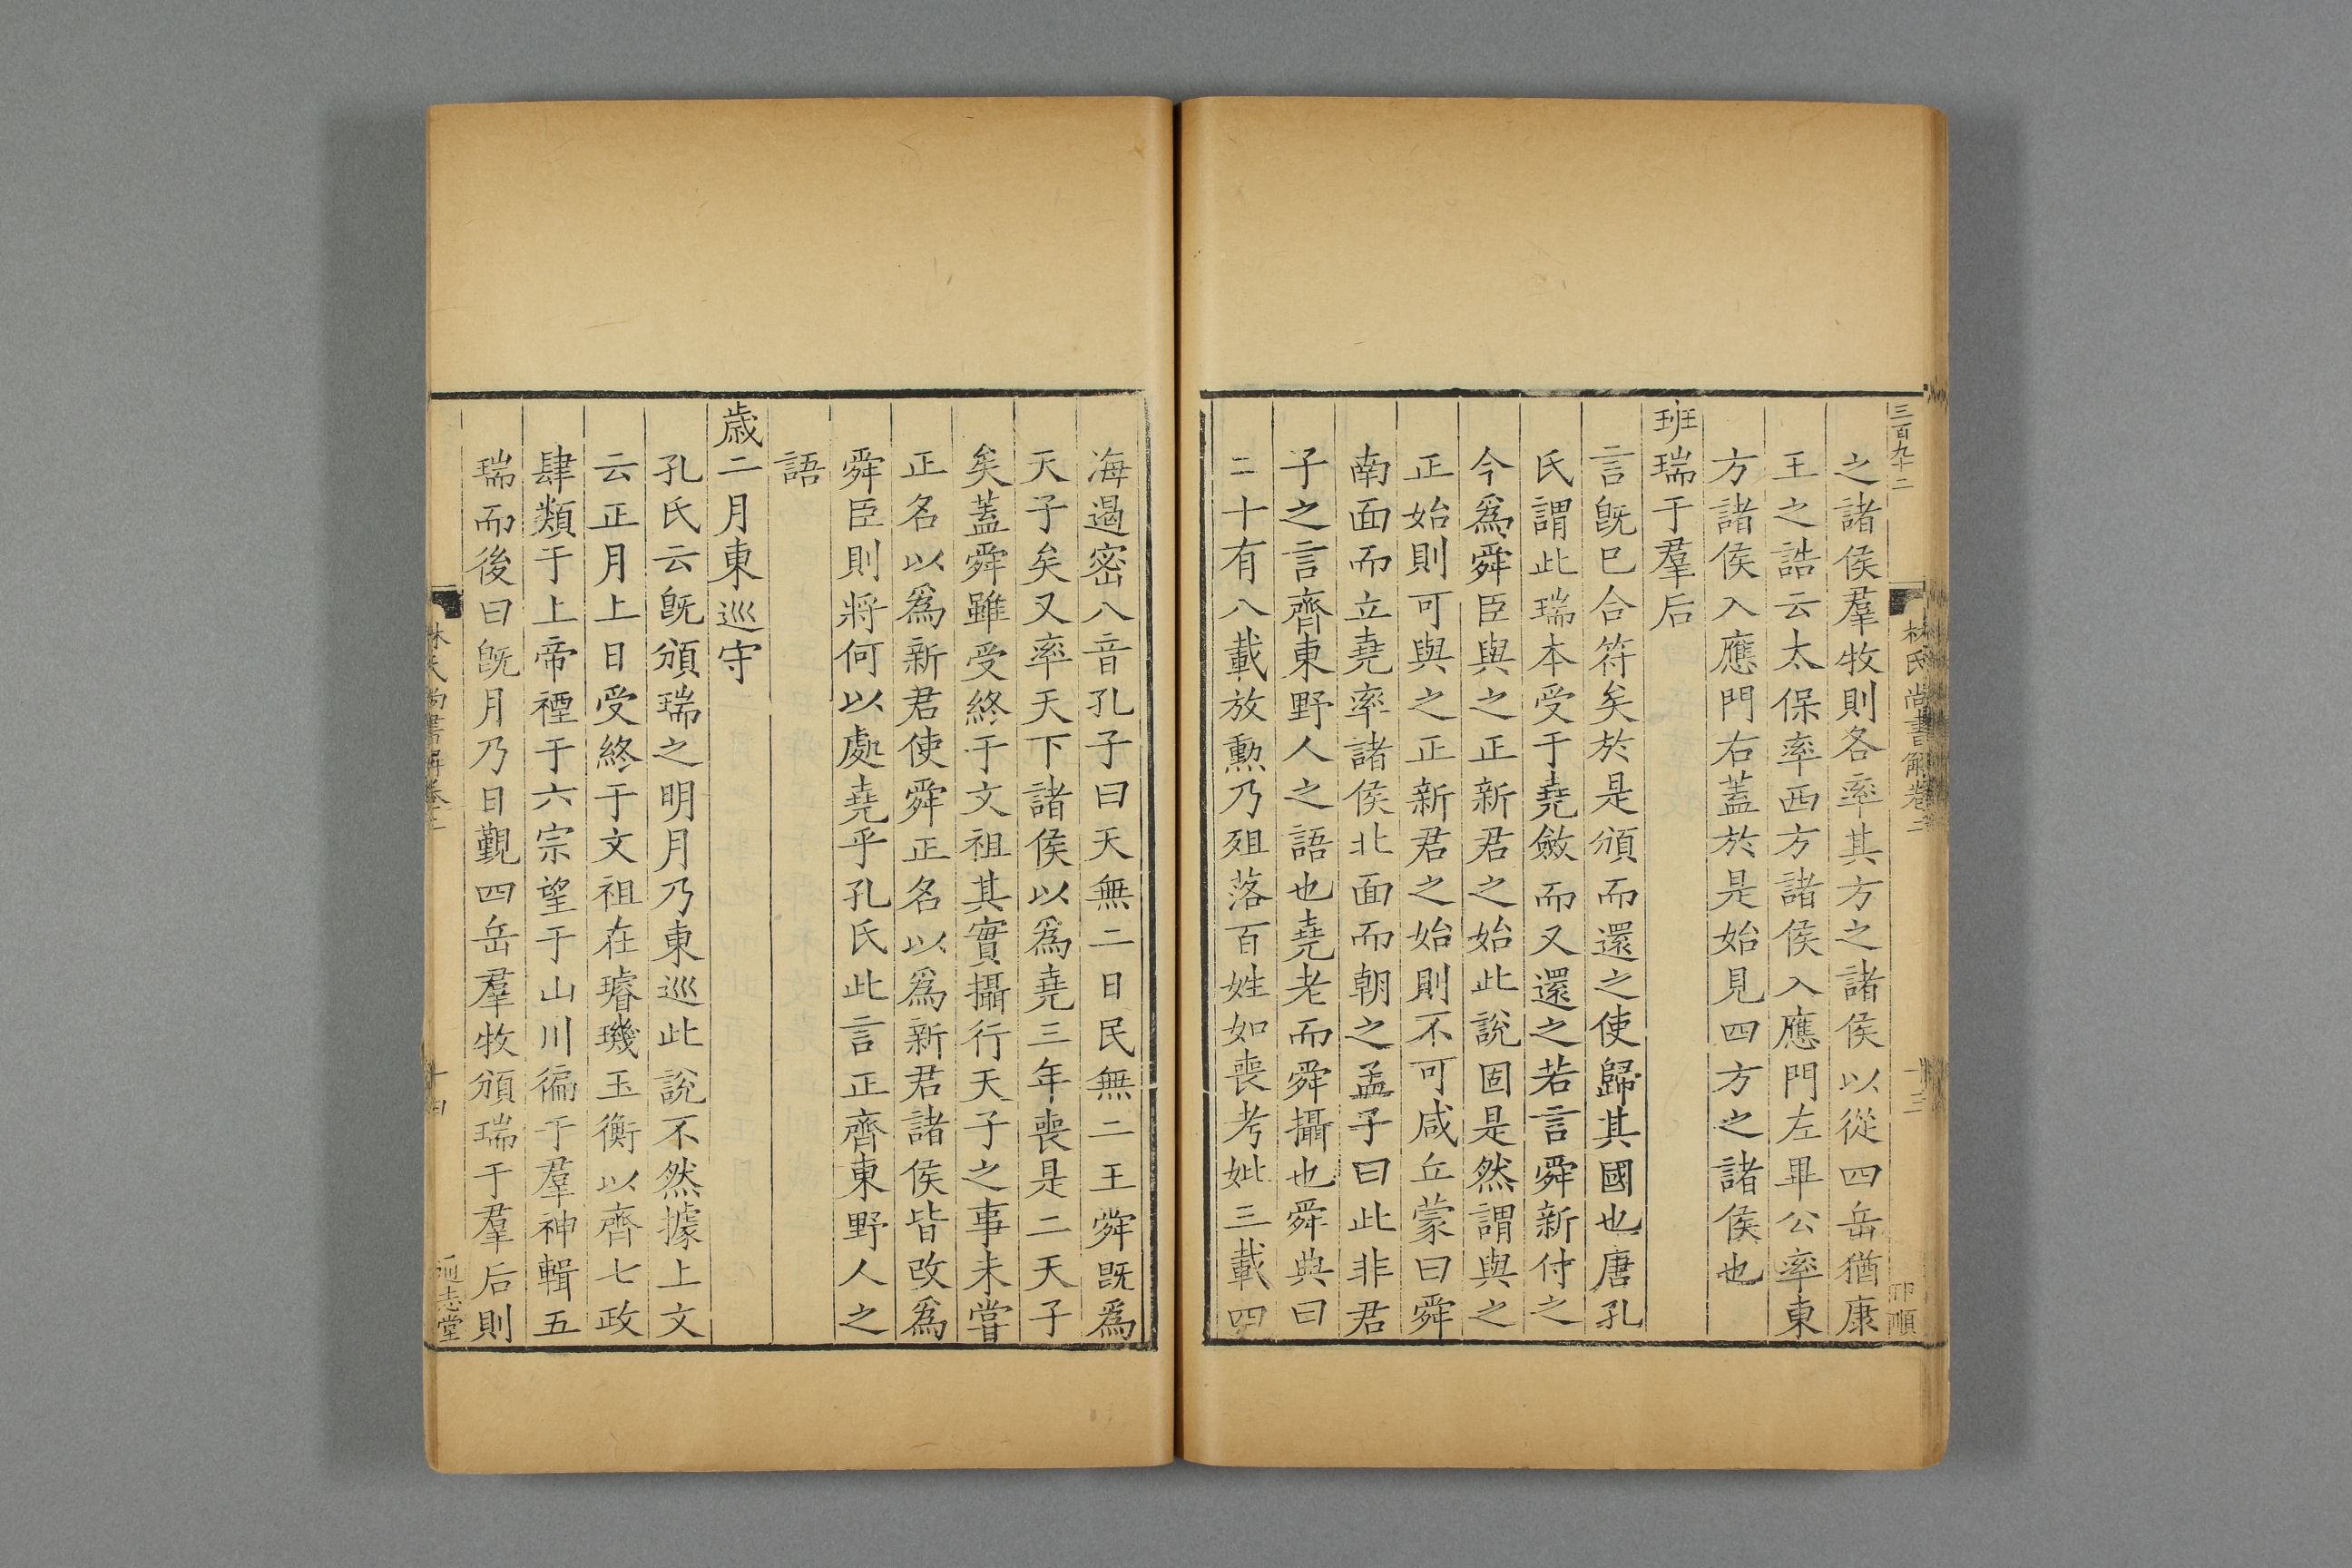 三百九十二
林氏尚書解卷二
十三
之諸侯羣牧則各率其方之諸侯以從四岳猶康
王之誥云太保率西方諸侯入應門左畢公率東
方諸侯入應門右蓋於是始見四方之諸侯也
班瑞于羣后
言旣巳合符矣於是頒而還之使歸其國也唐孔
氏謂此瑞本受于堯斂而又還之若言舜新付之
今爲舜臣與之正新君之始此說固是然謂與之
正始則可與之正新君之始則不可咸丘蒙曰舜
南面而立堯率諸侯北面而朝之孟子曰此非君
子之言齊東野人之語也堯老而舜攝也舜典曰
二十有八載放勲乃殂落百姓如喪考妣三載四
海遏密八音孔子曰天無二日民無二王舜旣爲
天子矣又率天下諸侯以爲堯三年喪是二天子
矣蓋舜雖受終于文祖其實攝行天子之事未嘗
正名以爲新君使舜正名以爲新君諸侯皆改爲
舜臣則將何以處堯乎孔氏此言正齊東野人之
語
歲二月東巡守
孔氏云旣頒瑞之明月乃東巡此說不然據上文
云正月上日受終于文祖在璿璣玉衡以齊七政
肆類于上帝禋于六宗望于山川徧于羣神輯五
瑞而後曰旣月乃日覲四岳羣牧頒瑞于羣后則
林氏尚書解卷二
十四
通志堂